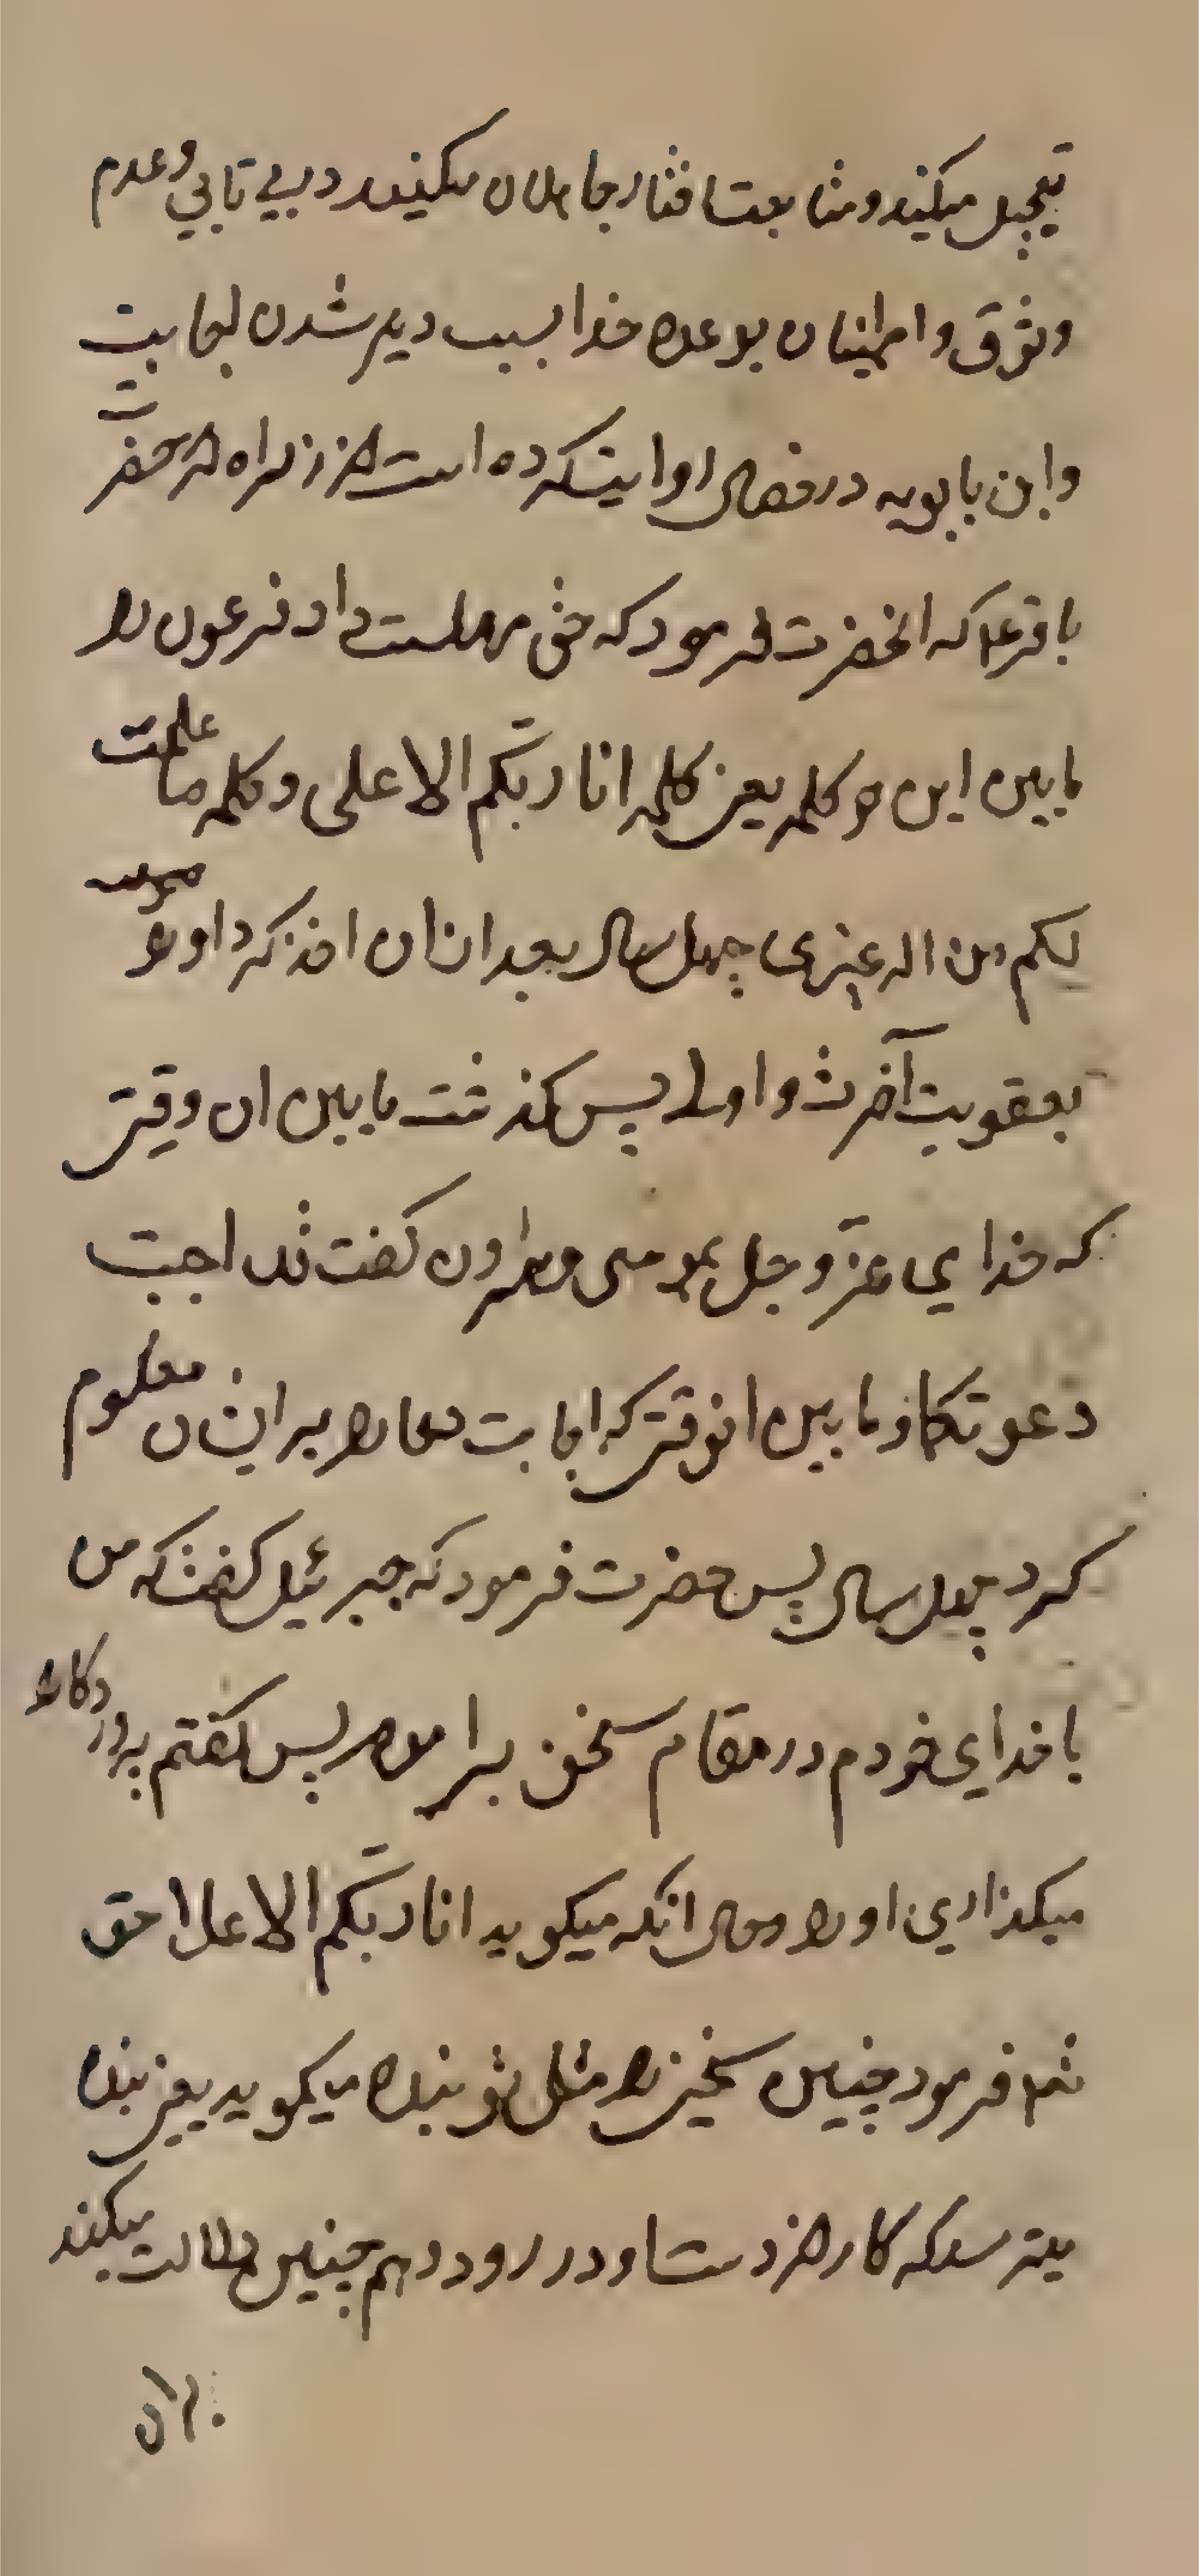 تعجیل میکنند و متابعت افتار جاهلان میکنند در بی تابی و عدم
وثوق و اطمینان بوعده خدا بسبب دیر شدن اجابت
و ابن بابویه در خصال روایت کرده است از زراره از حضرت
باقر ع که انحضرت فرمود که حق مهلت داد فرعون را
مابین این دو کلمه یعنی کلمه انا ربکم الاعلی و کلمه ما علمت
لکم من اله غیری چهل سال بعد از ان اخذ کرد او را
بعقوبت آخرت و اولی پس کذشت مابین ان وقتی
که خدای عز و جل بموسی و هارون کفت قد اجیبت
دعوتکما و مابین انوقتی که اجابت دعا را بر ایشان معلوم
کرد چهل سال پس حضرت فرمود که جبرئیل کفت که من
با خدای خودم در مقام سخن پس کفتم پروردکارا
میکذاری او را و حال انکه میکوید انا ربکم الاعلا حق
تعم فرمود چنین سخنی را مثل تو بنده میکوید یعنی بنده
میترسد که کار از دست او در رود و همچنین دلالت میکند
بران